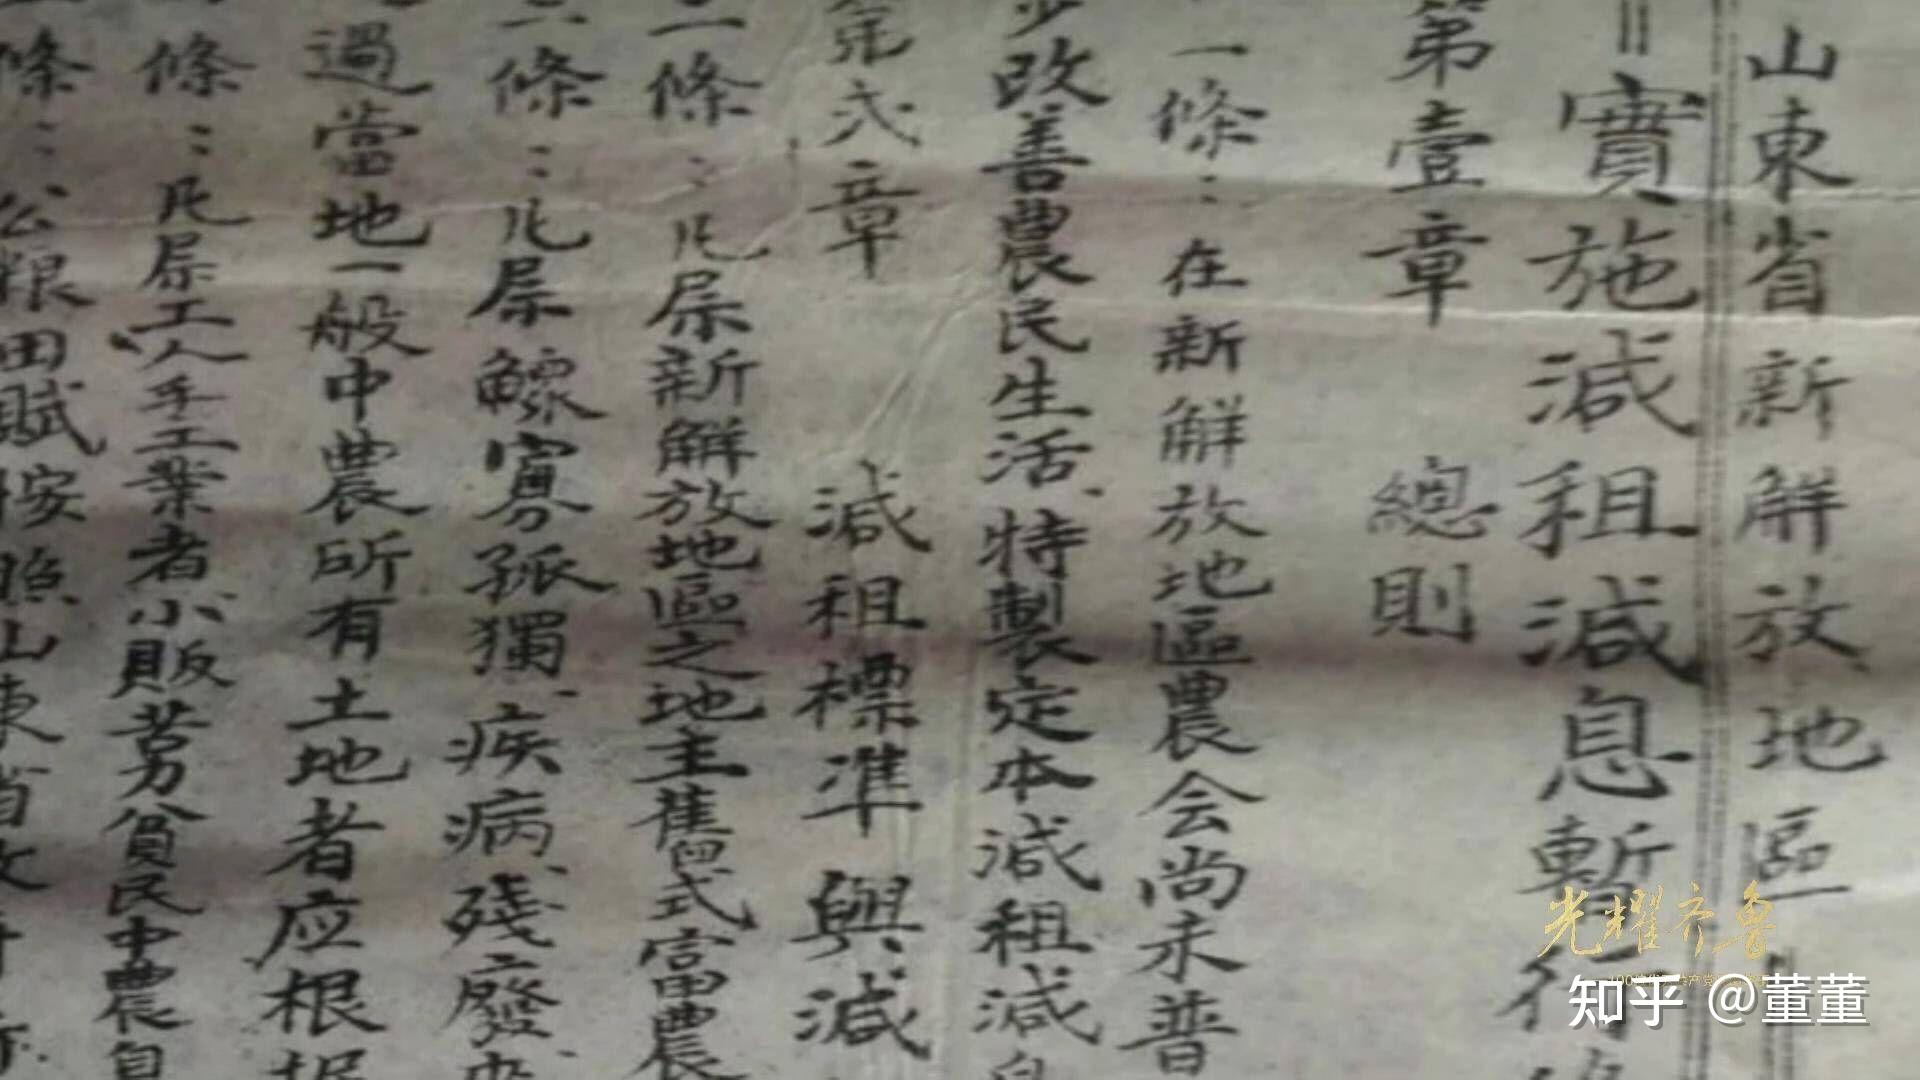 山東省新解放地區
實施減租減息暫行條
第壹章 總則
一條：在新解放地區農会尚未普
步改善農民生活、特製定本減租減息
第弍章 減租標準與減
二條：凡屬新解放地區之地主舊式富農
六條：凡屬鰥寡孤獨、疾病、殘廢
過當地一般中農所有土地者应根据
條：凡屬工人手工業者小販苦力貧民中農自
條：公粮田賦按照山東省政府
光耀齐鲁
知乎 @董董